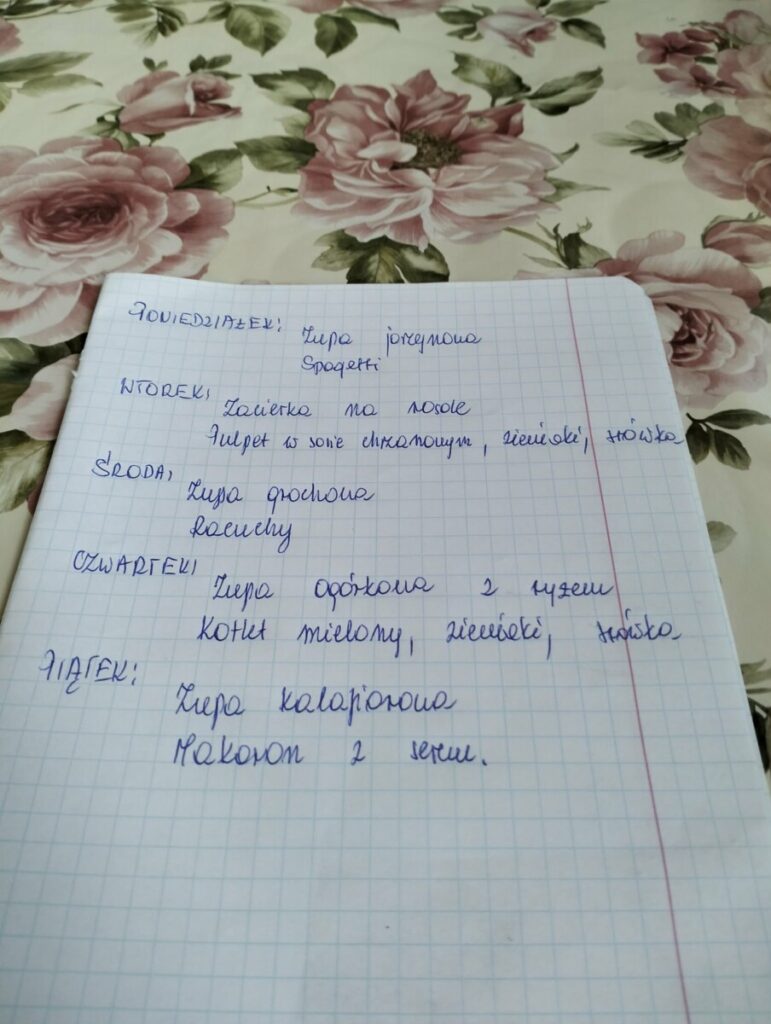 PONIEDZIAŁEK:
Zupa jarzynowa
Spagetti
WTOREK:
Zacierka na rosole
Pulpet w sosie chrzanowym, ziemiaki, srówka
ŚRODA:
Zupa grochowa
Racuchy
CZWARTEK:
Zupa ogórkowa z ryżem
Kotlet mielony, ziemiaki, srówka
PIĄTEK:
Zupa kalafiorowa
Makaron z serem.